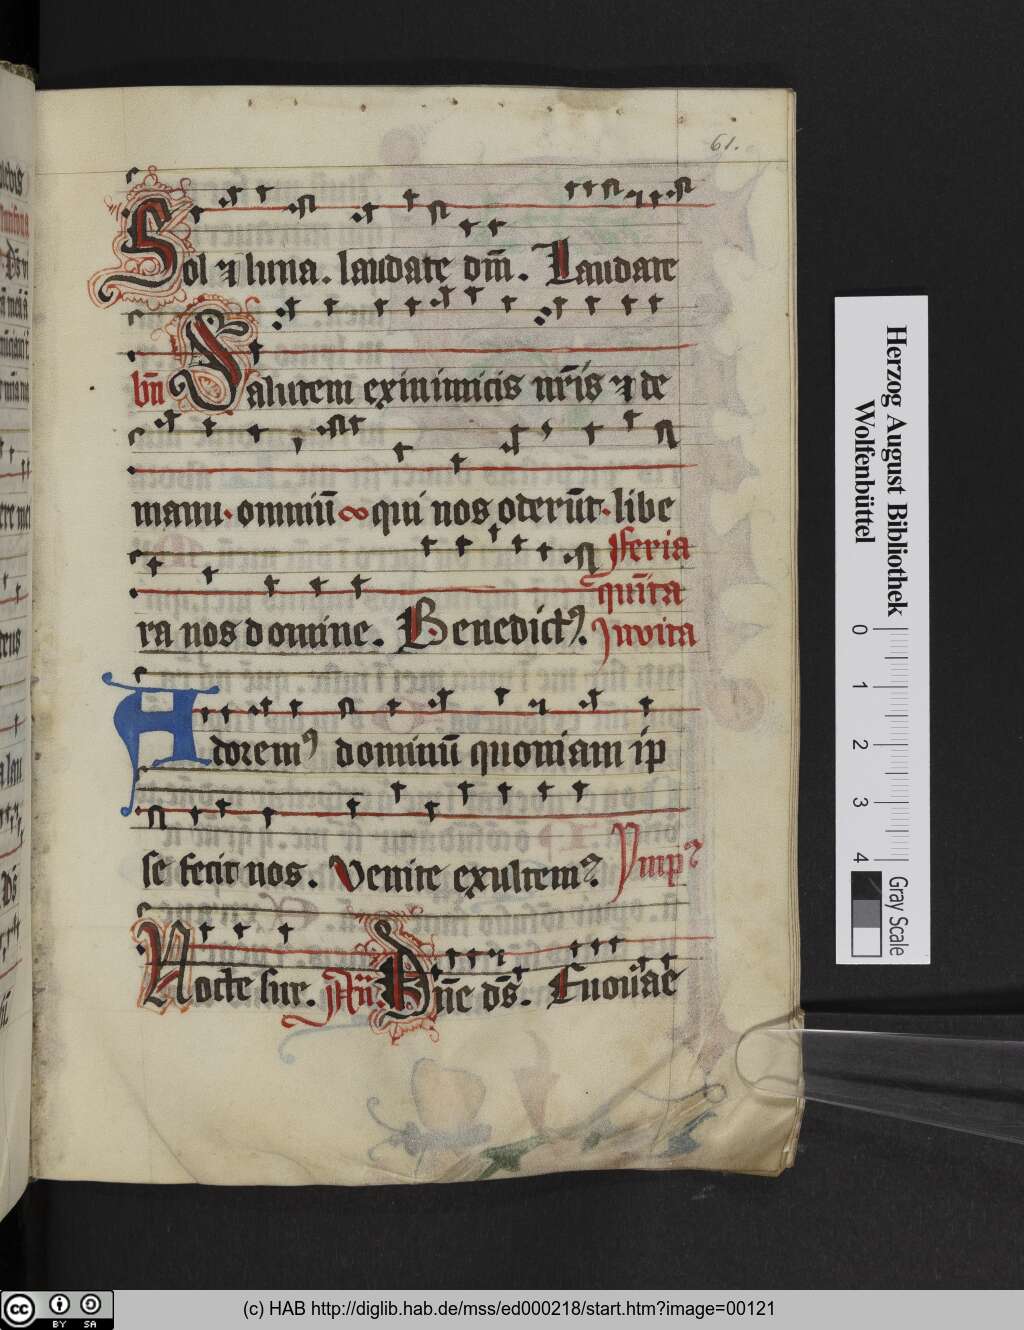 61.
Sol ⁊ luna. laudate dm̄. Laudate
bn̄ Salutem ex inimicis nr̄is ⁊ de
manu · omniū qui nos oderūt · libe
Feria
quīta
ra nos domine. Benedictꝰ. Invita
Adoremꝰ dominū quoniam ip
se fecit nos. Venite exultemꝰ
Ymp̄
Nocte sur. An̄. Dn̄e ds̄. Euouae
Herzog August Bibliothek
Wolfenbüttel
0 1 2 3 4
Gray Scale
cc BY SA
(c) HAB http://diglib.hab.de/mss/ed000218/start.htm?image=00121